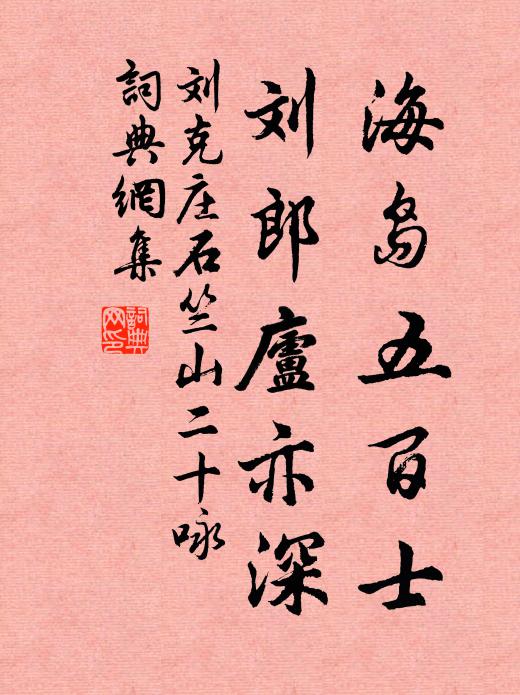 海岛五百士
刘郎廬亦深
刘克庄石竺山二十咏
詞典網集
詞典
网印